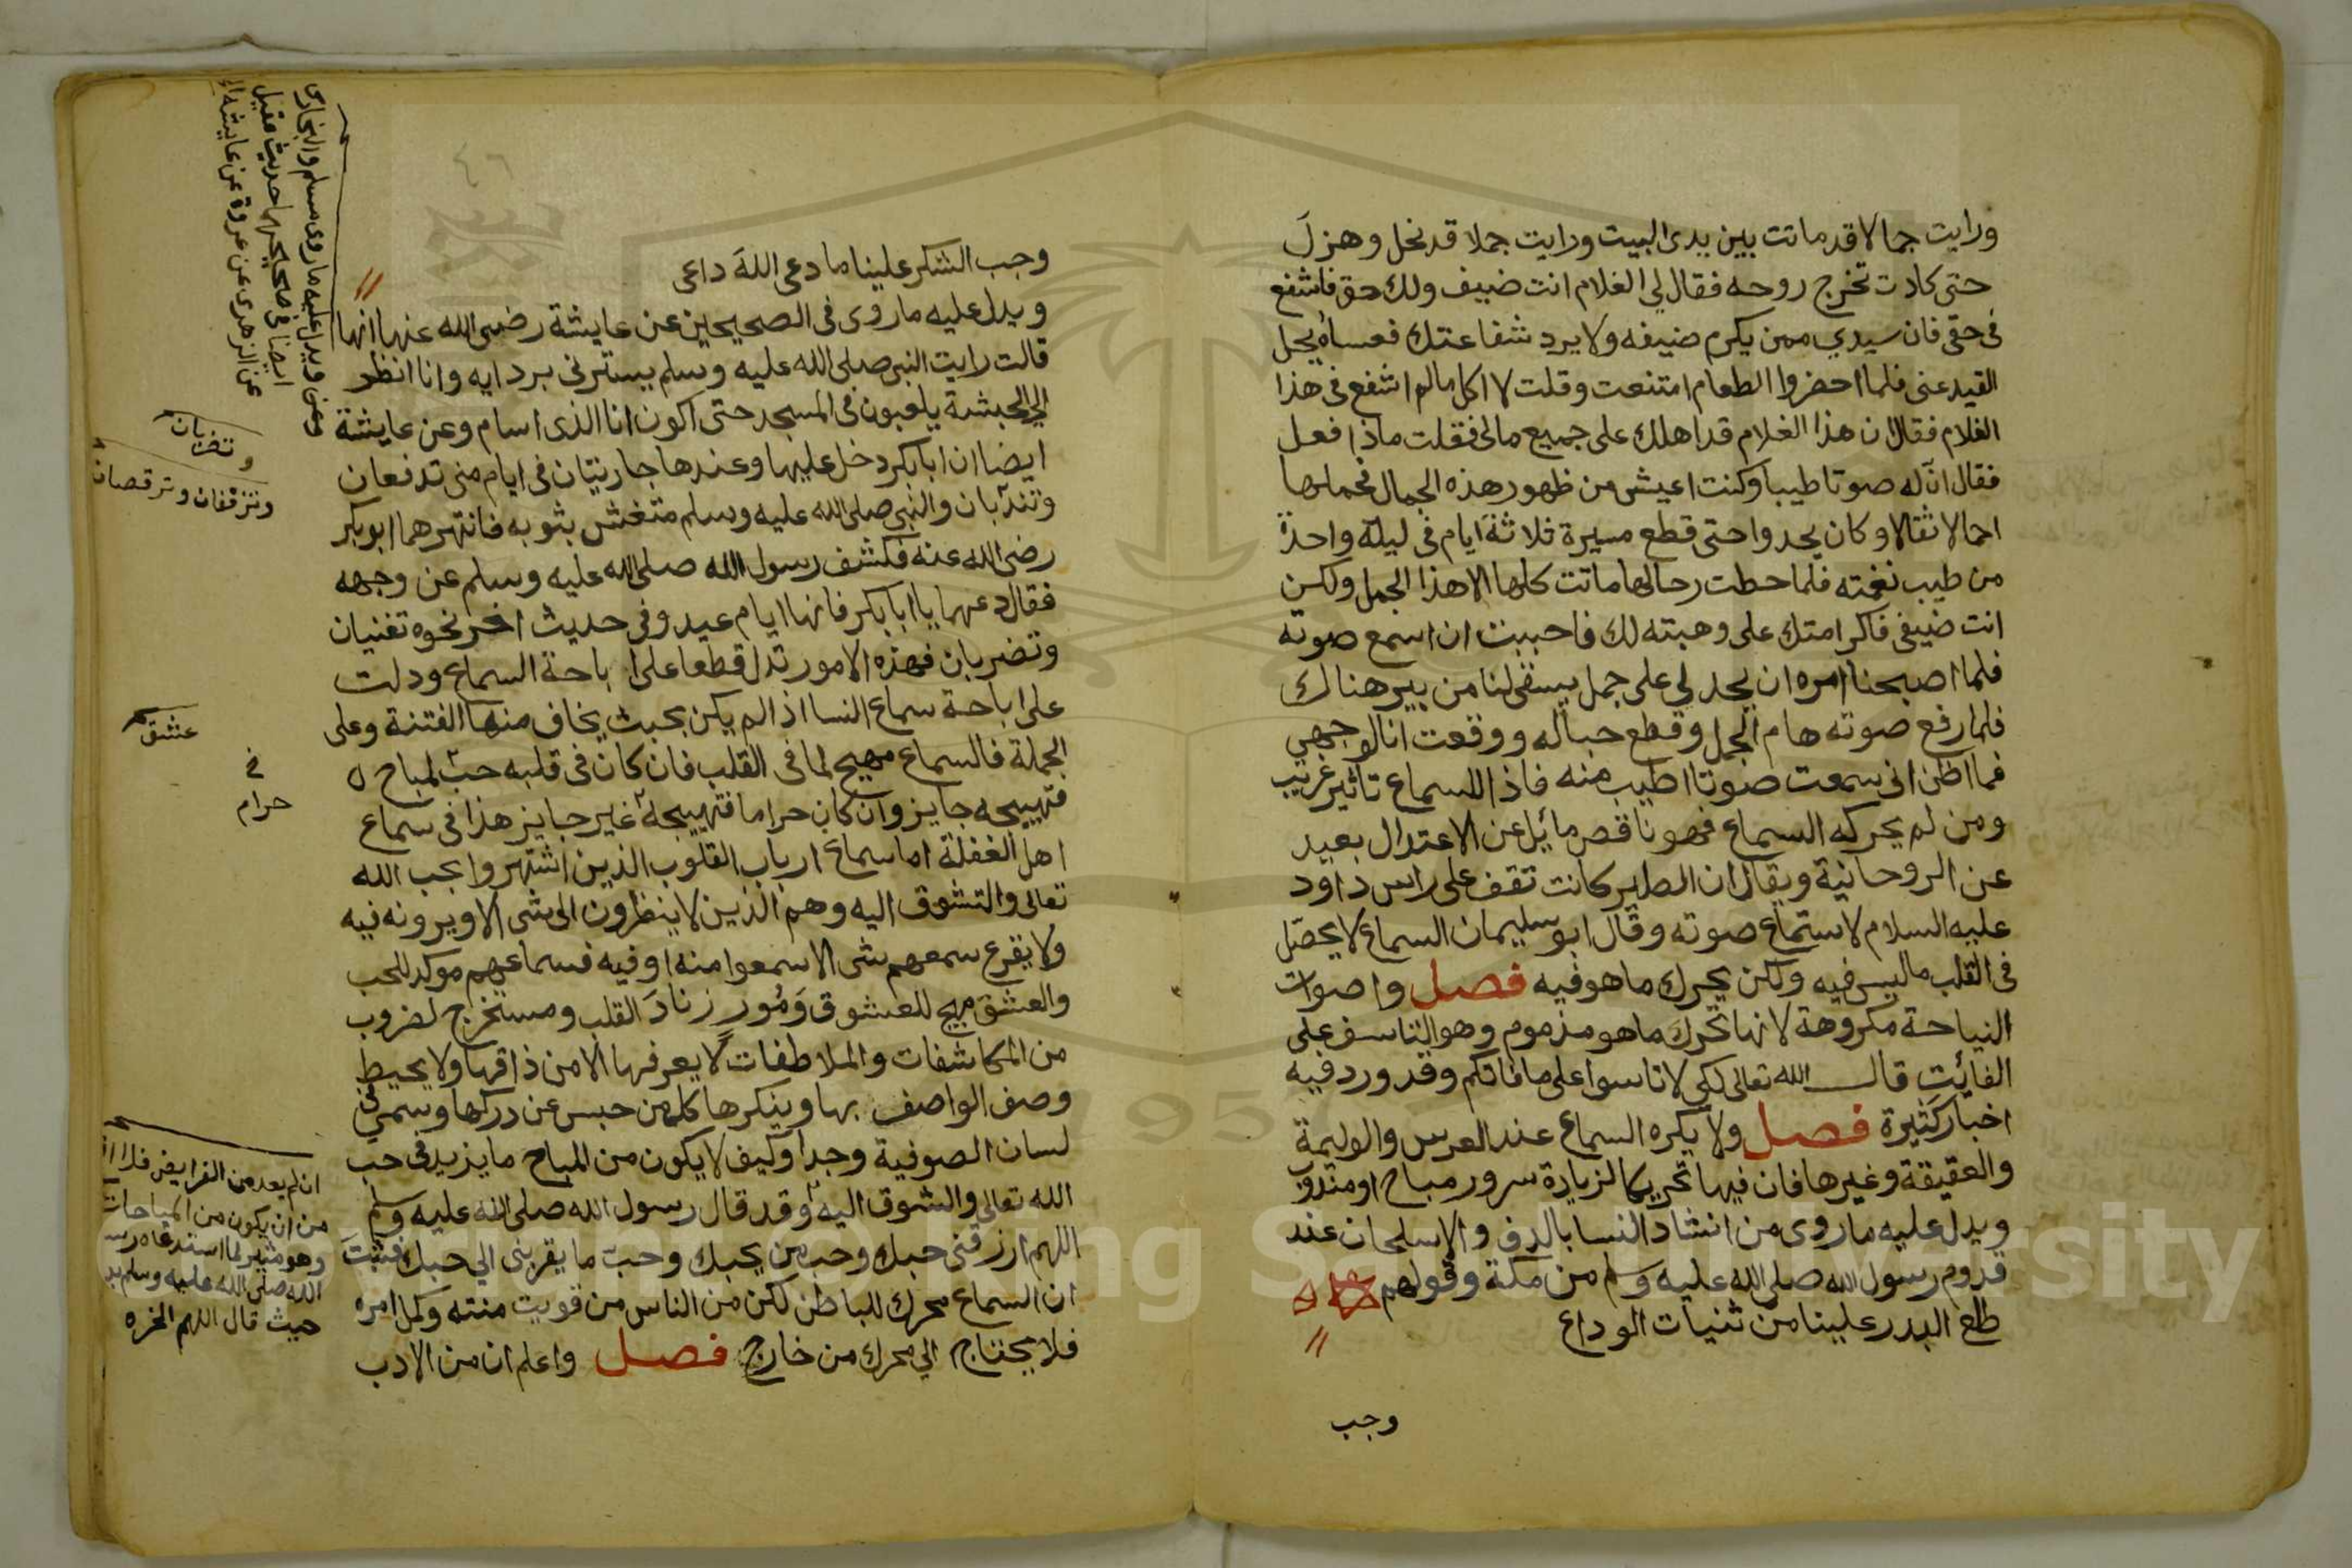 ورايت جمالا قد ماتت بين يدى البيت ورايت جملا قد نحل وهزل
حتى كادت تخرج روحه فقال لي الغلام انت ضيف ولك حق فاشفع
فى حقى فان سيدي ممن يكرم ضيفه ولا يرد شفاعتك فعساه يحل
القيد عنى فلما احضروا الطعام امتنعت وقلت لا اكل مالم اشفع فى هذا
الغلام فقال ان هذا الغلام قد اهلك على جميع مالى فقلت ماذا فعل
فقال ان له صوتا طيبا وكنت اعيش من ظهور هذه الجمال فحملها
احمالا ثقالا وكان يحدوا حتى قطع مسيرة ثلاثة ايام فى ليلة واحدة
من طيب نغمته فلما حطت رحالها ماتت كلها الا هذا الجمل ولكن
انت ضيفى فاكرامتك على وهبته لك فاحببت ان اسمع صوته
فلما اصبحنا امره ان يحد لي على جمل يستقى لنا من بير هناك
فلما رفع صوته هام الجمل وقطع حباله ووقعت انا لوجهي
فما اظن انى سمعت صوتا اطيب منه فاذا للسماع تأثير غريب
ومن لم يحركه السماع فهو ناقص مائل عن الاعتدال بعيد
عن الروحانية ويقال ان الطير كانت تقف على راس داود
عليه السلام لاستماع صوته وقال ابو سليمان السماع لا يحصل
فى القلب ما ليس فيه ولكن يحرك ما هو فيه فصل واصوات
النياحة مكروهة لانها تحرك ما هو مذموم وهو التاسف على
الفائت قال الله تعالى لكى لا تاسوا على ما فاتكم وقد ورد فيه
اخبار كثيرة فصل ولا يكره السماع عند العرس والوليمة
والعقيقة وغيرها فان فيها تحريكا لزيادة سرور مباح او مندوب
ويدل عليه ما روى من انشاد النسا بالدف والالحان عند
قدوم رسول الله صلى الله عليه وسلم من مكة وقولهم
طلع البدر علينا من ثنيات الوداع
وجب
٤٦
وجب الشكر علينا ما دعى الله داعى
ويدل عليه ما روى فى الصحيحين عن عايشة رضى الله عنها انها
قالت رايت النبى صلى الله عليه وسلم يسترنى بردايه وانا انظر
الى الحبشة يلعبون فى المسجد حتى اكون انا الذى اسام وعن عايشة
ايضا ان ابا بكر دخل عليها وعندها جاريتان فى ايام منى تدفعان
وتندبان والنبى صلى الله عليه وسلم متغش بثوبه فانتهرهما ابوبكر
رضى الله عنه فكشف رسول الله صلى الله عليه وسلم عن وجهه
فقال دعهما يا ابا بكر فانها ايام عيد وفى حديث اخر نحوه تغنيان
وتضربان فهذه الامور تدل قطعا على اباحة السماع ودلت
على اباحة سماع النسا اذا لم يكن بحيث يخاف منها الفتنة وعلى
الجملة فالسماع مهيج لما فى القلب فان كان فى قلبه حب لمباح
فتهييجه جايز وان كان حراما فتهييجه غير جايز هذا فى سماع
اهل الغفلة اما سماع ارباب القلوب الذين اشتهروا بحب الله
تعالى والتشوق اليه وهم الذين لا ينظرون الى شى الا ويرونه فيه
ولا يقرع سمعهم شى الا سمعوا منه او فيه فسماعهم موكد للحب
والعشق مهيج للعشوق ومور زناد القلب ومستخرج لضروب
من المكاشفات والملاطفات لا يعرفها الا من ذاقها ولا يحيط
وصف الواصف بها وينكرها كل من حبس عن دركها وسمى فى
لسان الصوفية وجدا وكيف لا يكون من المباح ما يزيد فى حب
الله تعالى والشوق اليه وقد قال رسول الله صلى الله عليه وسلم
اللهم ارزقنى حبك وحب من يحبك وحب ما يقربنى الي حبك فثبت
ان السماع محرك للباطن لكن من الناس من قويت منته وكمل امره
فلا يحتاج الي محرك من خارج فصل واعلم ان من الادب
ويدل عليه ما روى مسلم والبخارى
ايضا فى صحيحيهما حديث عقيل
عن الزهرى عن عروة عن عايشة
وتضربان
وتزفنان وترقصان
عشق
خ
حرام
ان لم يعد من الفرايض فلا
من ان يكون من المباحات
وهو مثير لما استدعاه رسول
الله صلى الله عليه وسلم
حيث قال اللهم الخ